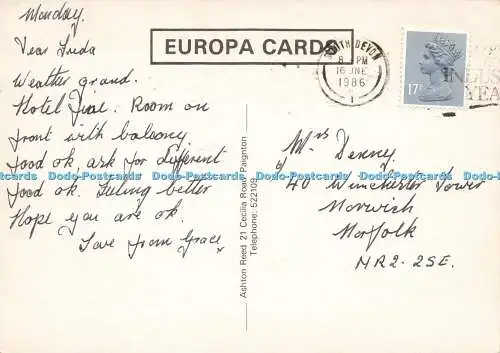 Monday
Dear Freda
Weather grand.
Hotel fine. Room on
front with balcony
food ok. ask for different
food ok. feeling better
Hope you are ok.
Love from Grace x
EUROPA CARDS
SOUTH DEVON
8 PM
16 JNE
1986
INDUS
YEA
17P
Mrs Denny
40 Winchester Tower
Norwich
Norfolk
NR2-2SE.
Ashton Reed 21 Cecilia Road Paignton
Telephone: 522109
Dodo-Postcards Dodo-Postcards Dodo-Postcards Dodo-Postcards